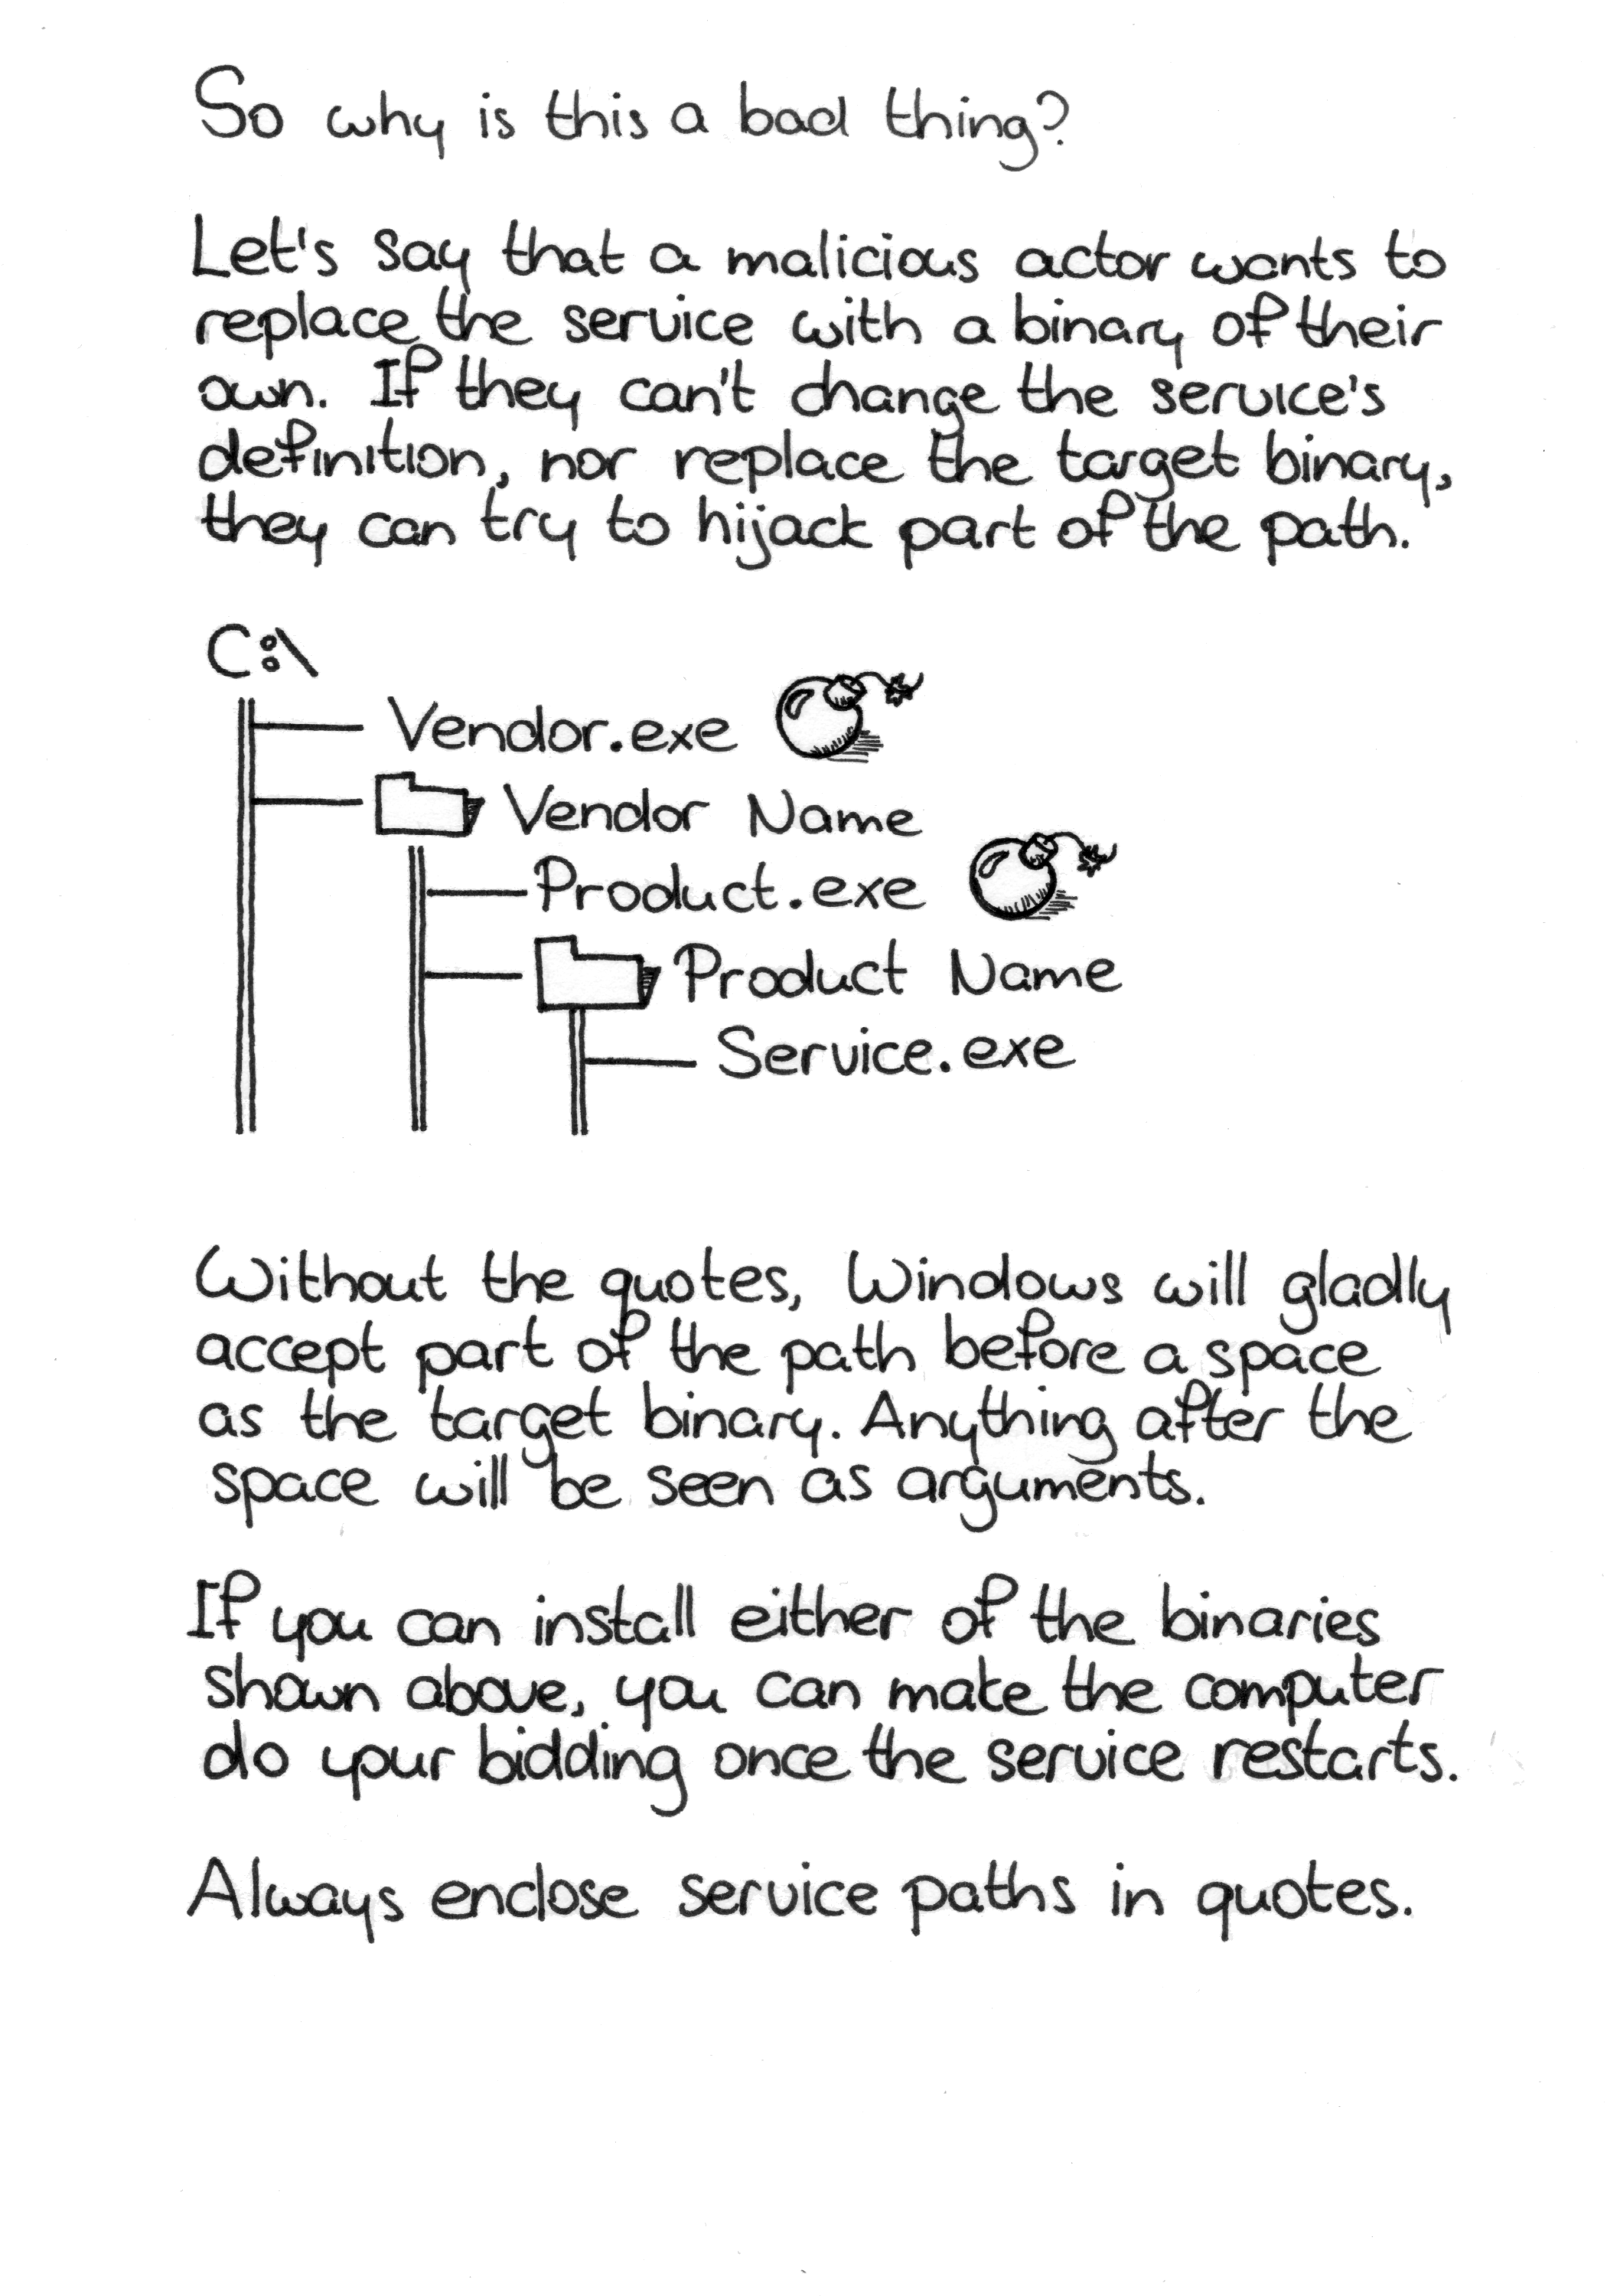 So why is this a bad thing?
Let's say that a malicious actor wants to
replace the service with a binary of their
own. If they can't change the service's
definition, nor replace the target binary,
they can try to hijack part of the path.
C:\
Vendor.exe
Vendor Name
Product.exe
Product Name
Service.exe
Without the quotes, Windows will gladly
accept part of the path before a space
as the target binary. Anything after the
space will be seen as arguments.
If you can install either of the binaries
shown above, you can make the computer
do your bidding once the service restarts.
Always enclose service paths in quotes.